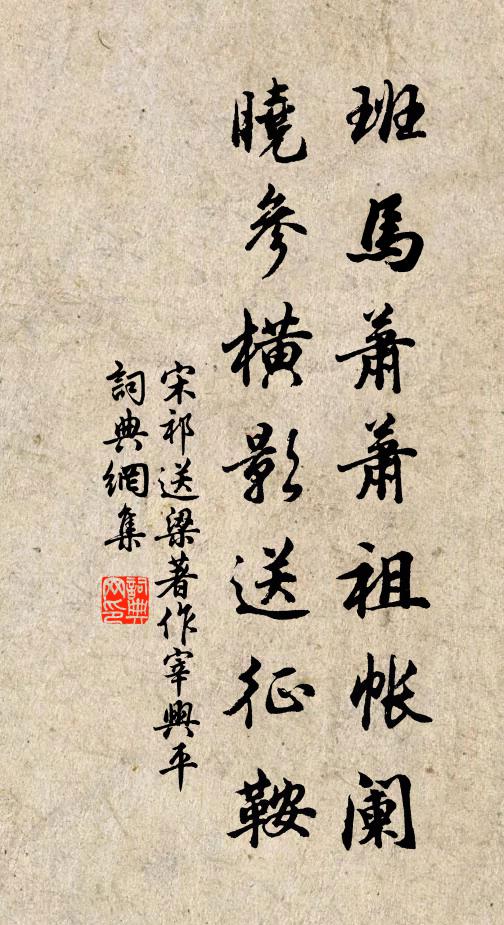 班馬蕭蕭祖帐阑
曉參橫影送征鞍
宋祁送梁著作宰興平
詞典網集
詞典
网印